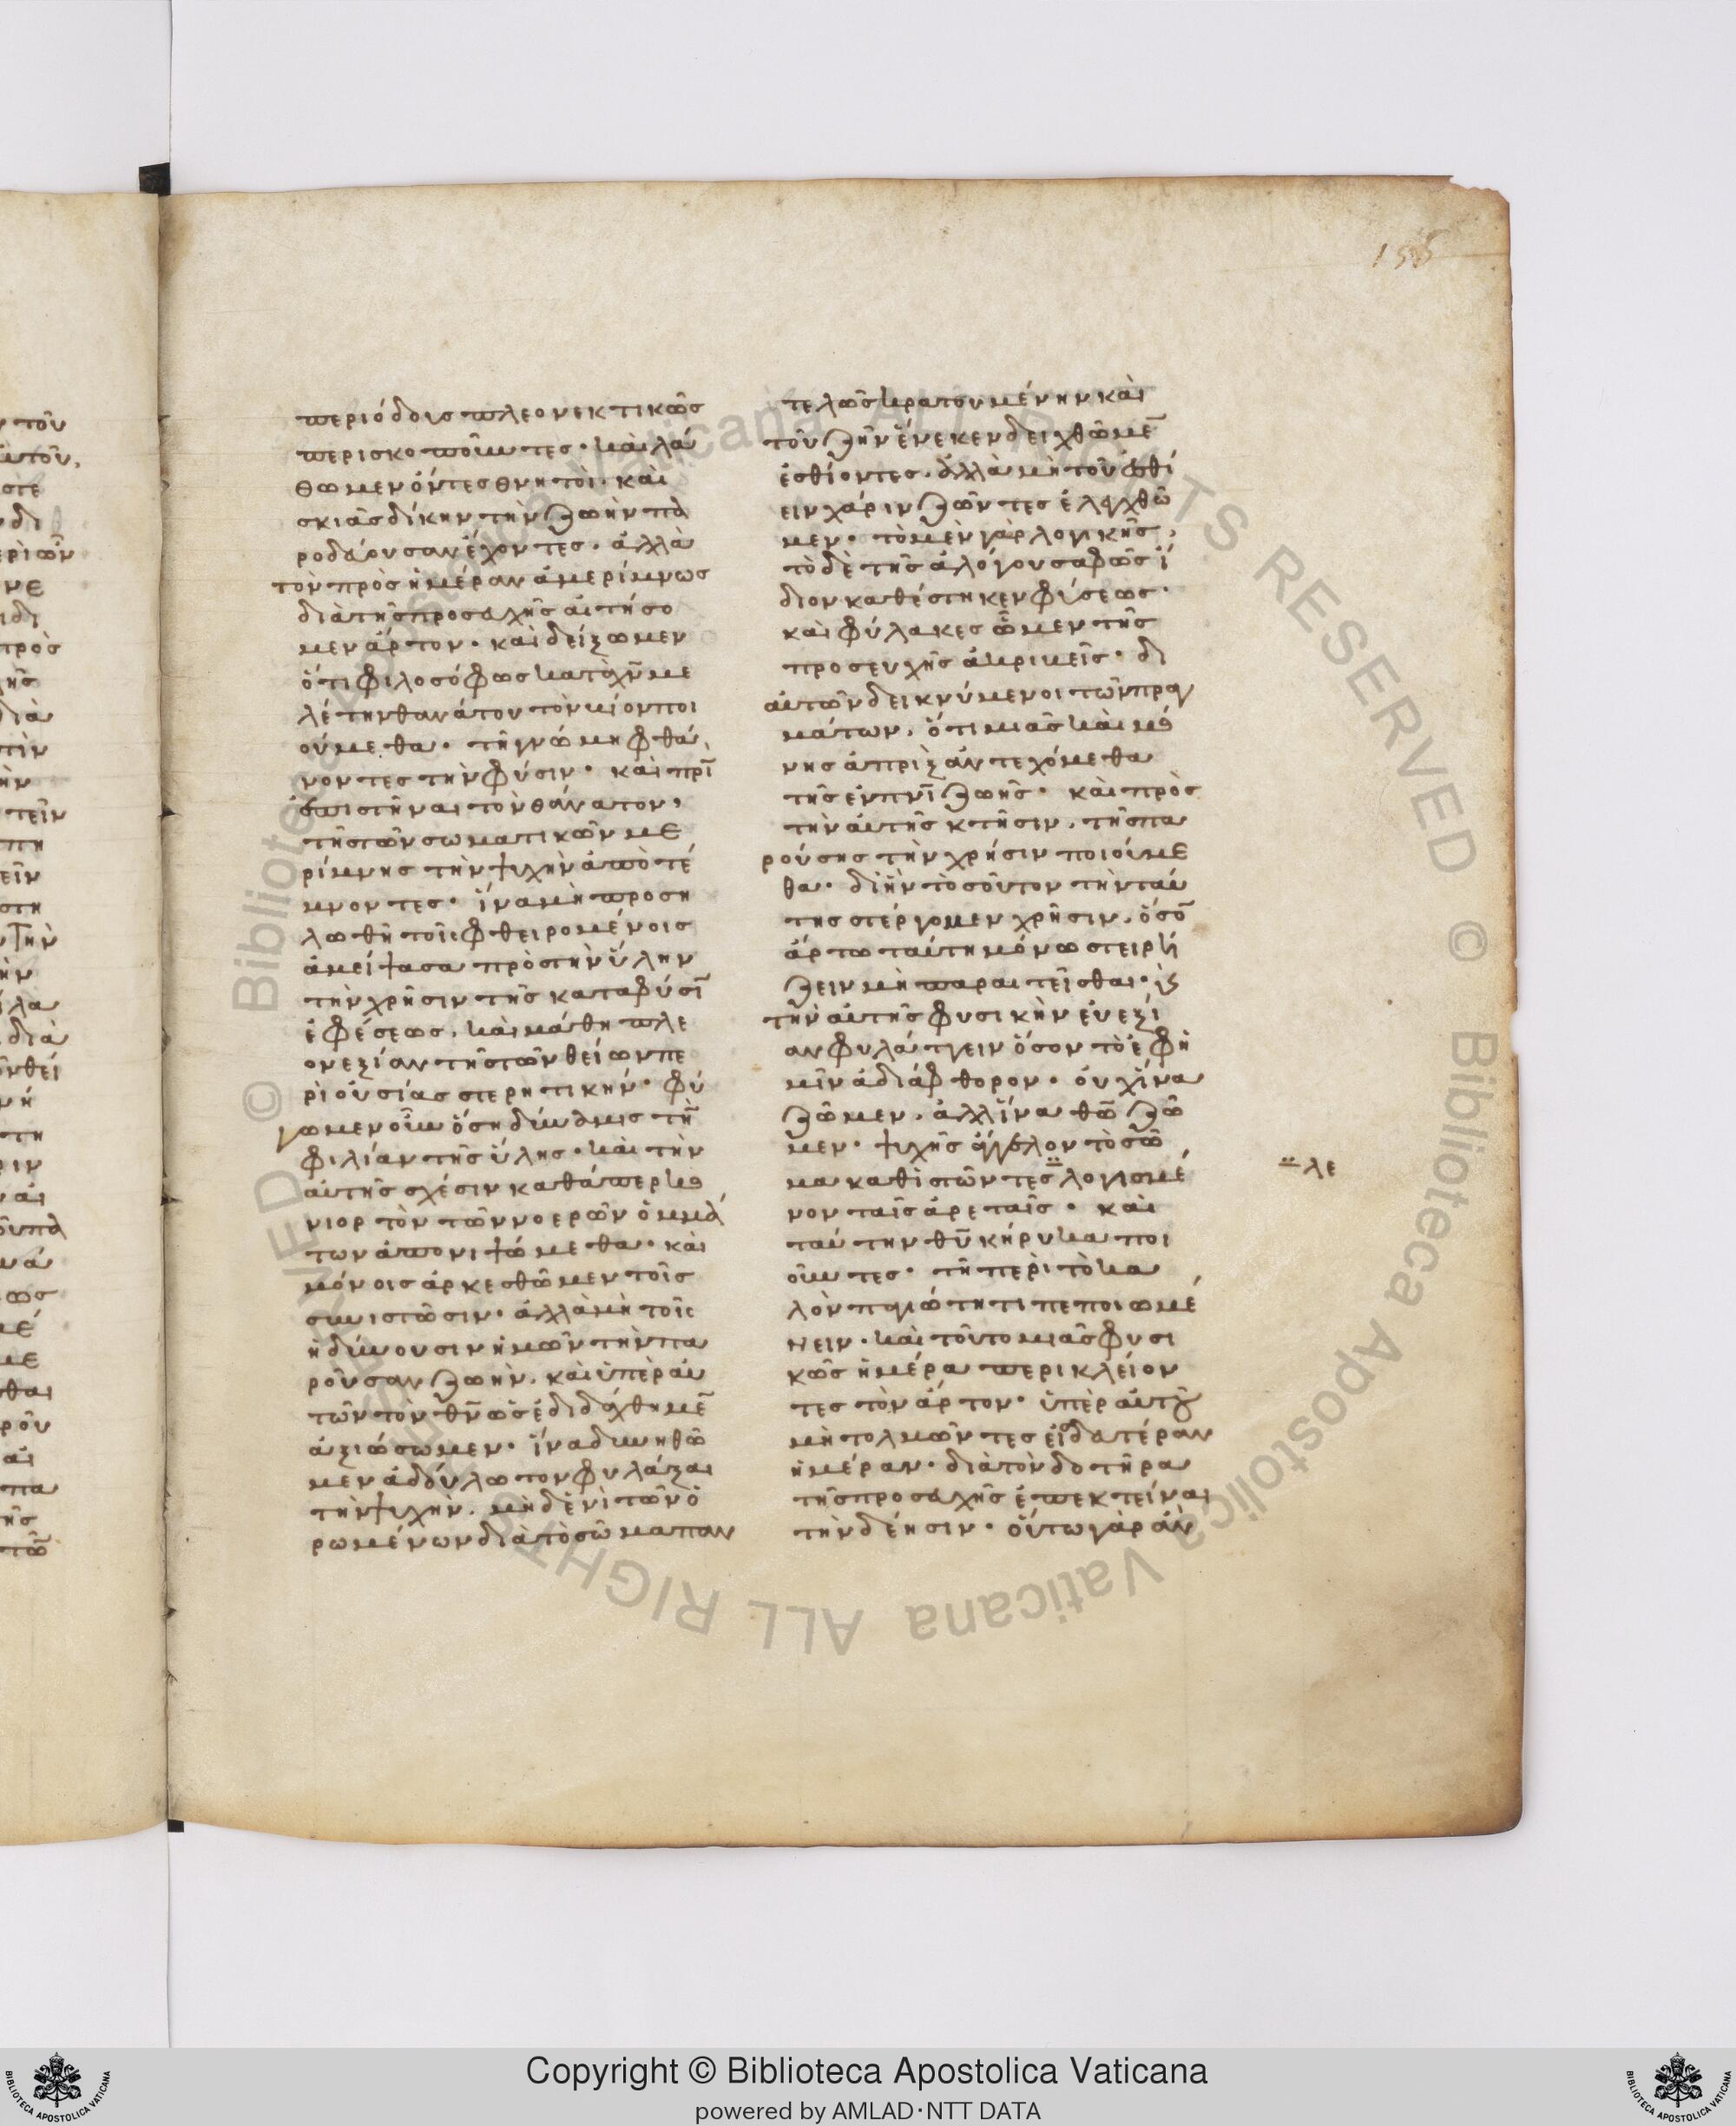 περιόδοις πλεονεκτικῶς
περισκοποῦντες· καὶ λά
θωμεν ὄντες θνητοὶ· καὶ
σκιᾶς δίκην τὴν ζωὴν πα
ροδεύουσαν ἔχοντες· ἀλλὰ
τὸν πρὸς ἡμέραν ἀμερίμνως
διὰ τῆς προσευχῆς αἰτήσο
μεν ἄρτον· καὶ δείξωμεν
ὅτι φιλοσόφως κατὰ χν̅ με
λέτην θανάτου τὸν βίον ποι
ούμεθα· τῇ γνώμῃ φθά
νοντες τὴν φύσιν· καὶ πρὶ
ἐπιστῆναι τὸν θάνατον,
τῆς τῶν σωματικῶν με
ρίμνης τὴν ψυχὴν ἀποτέ
μνοντες· ἵνα μὴ προση
λωθῇ τοῖς φθειρομένοις
ἀμείψασα πρὸς τὴν ὕλην
τὴν χρῆσιν τῆς κατα φύσι
ἐφέσεως, καὶ μάθῃ πλε
ονεξίαν τῆς τῶν θείων πε
ριουσίας στερητικήν· φύ
γωμεν οὖν ὅση δύναμις τὴ
φιλίαν τῆς ὕλης· καὶ τὴν
αὐτῆς σχέσιν καθάπερ κο
νιορτὸν τῶν νοερῶν ὀμμά
των ἀπονιψώμεθα· καὶ
μόνοις ἀρκεσθῶμεν τοῖς
συνιστῶσιν· ἀλλὰ μὴ τοῖς
ἡδύνουσιν ἡμῶν τὴν πα
ροῦσαν ζωὴν, καὶ ὑπὲρ αὐ
τῶν τὸν θν̅ ὡς ἐδιδάχθημε
ἀξιώσωμεν· ἵνα δυνηθῶ
μεν ἀδούλωτον φυλάξαι
τὴν ψυχὴν, μηδενὶ τῶν ὁ
ρωμένων διὰ τὸ σῶμα παν
τελῶς κρατουμένην καὶ
τοῦ ζῆν ἕνεκεν δειχθῶμε
ἐσθίοντες, ἀλλὰ μὴ τοῦ ἐσθί
ειν χάριν ζῶντες ἐλεγχθῶ
μεν· τὸ μὲν γὰρ λογικῆς,
τὸ δὲ τῆς ἀλόγου σαφῶς ἴ
διον καθέστηκεν φύσεως·
καὶ φύλακες ὦμεν τῆς
προσευχῆς ἀκριβεῖς· δι
αὐτῶν δεικνύμενοι τῶν πραγ
μάτων, ὅτι μιᾶς καὶ μό
νης ἀπρὶξ ἀντεχόμεθα
τῆς ἐν πνι̅ ζωῆς· καὶ πρὸς
τὴν αὐτῆς κτῆσιν, τῆς πα
ρούσης τὴν χρῆσιν ποιούμε
θα· δι' ἣν τοσοῦτον τὴν ταύ
της στέργομεν χρῆσιν, ὅσο
ἄρτω ταύτη μόνω στειρί
ζειν μὴ παραιτεῖσθαι· κς
τὴν αὐτῆς φυσικὴν εὐεξί
αν φυλάττειν ὅσον τὸ ἐφ' ἡ
μῖν ἀδιάφθορον· οὐχ ἵνα
ζῶμεν, ἀλλ' ἵνα θω̅ ζῶ
μεν· ψυχῆς ἄγγελον τὸ σῶ
μα καθιστῶντες λογισμέ
νον ταῖς ἀρεταῖς· καὶ
ταύτην θυ̅ κήρυκα ποι
οῦντες· τῇ περὶ τὸ κα
λὸν παγιότητι πεποιωμέ
νειν· καὶ τοῦτο μιᾶς φυσι
κῶς ἡμέρα περικλείον
τες τὸν ἄρτον· ὑπὲρ αὐτοῦ
μὴ τολμῶντες εἰς δευτέραν
ἡμέραν· διὰ τὸν δοτῆρα
τῆς προσευχῆς ἐπεκτεῖναι
τὴν δέησιν· οὕτω γὰρ ἂν
λε